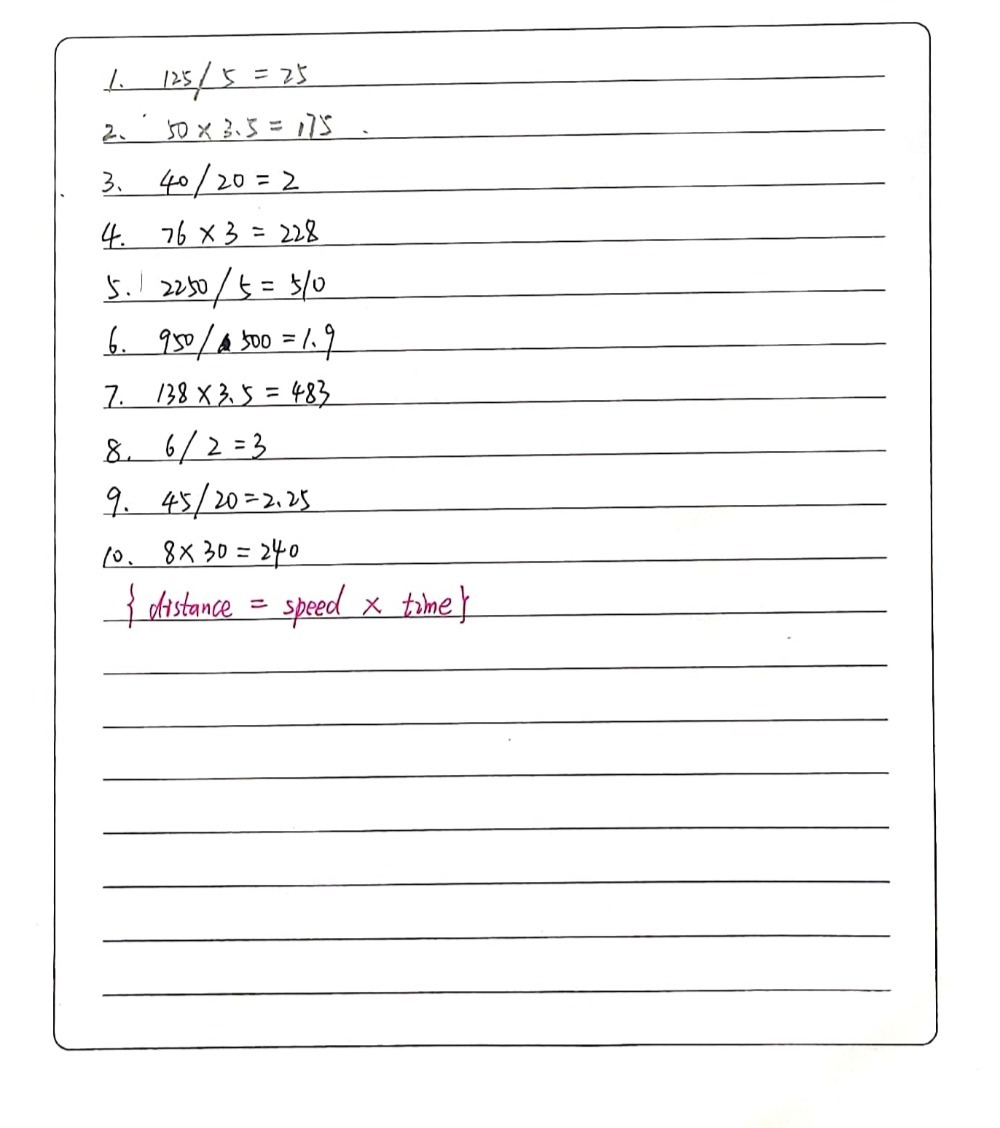 1. 125/5 = 25
2. 50 × 3.5 = 175
3. 40/20 = 2
4. 76 × 3 = 228
5. 2250/5 = 510
6. 950/500 = 1.9
7. 138 × 3.5 = 483
8. 6/2 = 3
9. 45/20 = 2.25
10. 8 × 30 = 240
{ distance = speed × time }